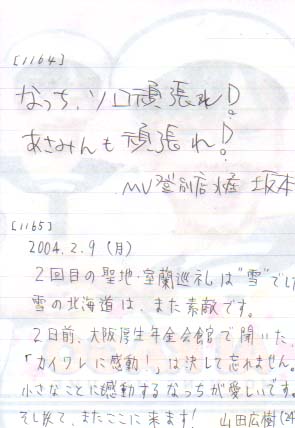 [1164]
なっち、ソロ頑張れ!
あさみんも頑張れ!
MV登別店 水産 坂本
[1165]
2004.2.9 (月)
2回目の聖地・室蘭巡礼は"雪"でし
雪の北海道は、また素敵です。
2日前、大阪厚生年金会館で聞いた、
「カイワレに感動!」は決して忘れません。
小さなことに感動するなっちが愛しいです。
またここに来ます! 山田広樹(24